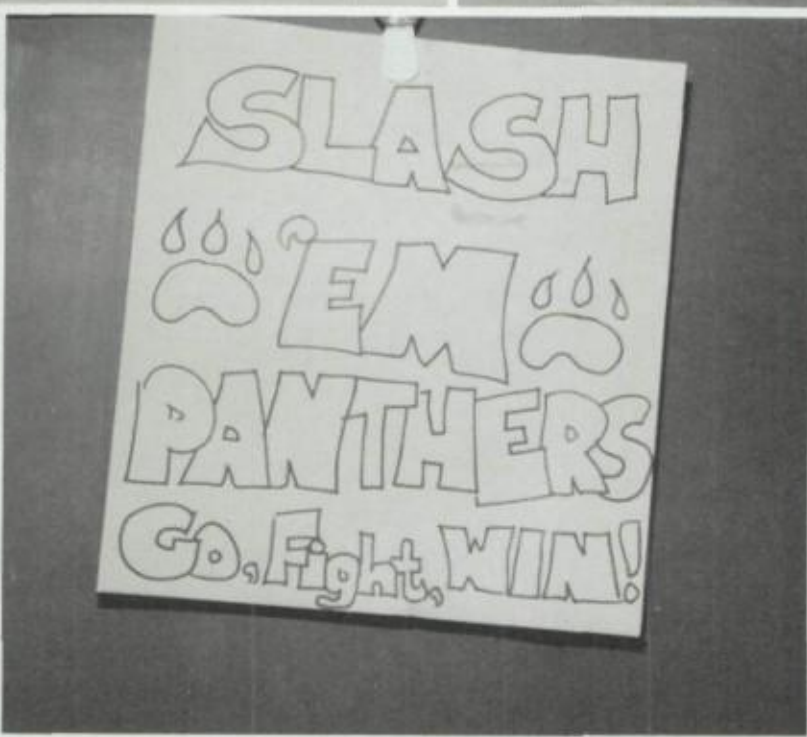 SLASH
'EM
PANTHERS
Go, Fight, WIN!